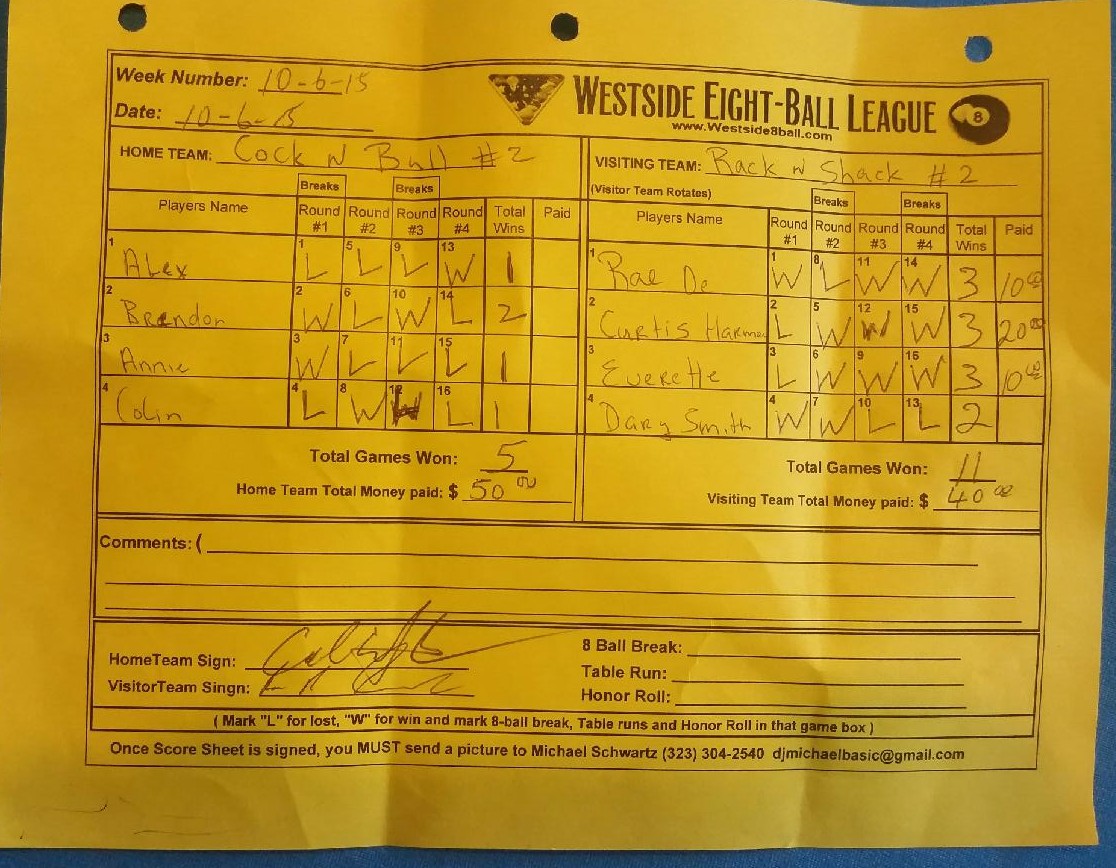 Week Number: 10-6-15
Date: 10-6-15
WESTSIDE EIGHT-BALL LEAGUE 8
www.Westside8ball.com
HOME TEAM: Cock N Bull #2
Breaks Breaks
Players Name Round #1 Round #2 Round #3 Round #4 Total Wins Paid
1 Alex 1 L 5 L 9 L 13 W 1
2 Brendon 2 W 6 L 10 W 14 L 2
3 Annie 3 W 7 L 11 L 15 L 1
4 Colin 4 L 8 W 12 16 L 1
Total Games Won: 5
Home Team Total Money paid: $ 50 00
VISITING TEAM: Rack N Shack #2
(Visitor Team Rotates) Breaks Breaks
Players Name Round #1 Round #2 Round #3 Round #4 Total Wins Paid
1 Rae De 1 W 8 L 11 W 14 W 3 10 00
2 Curtis 2 L 5 W 12 W 15 W 3 20 00
3 Everette 3 L 6 W 9 W 16 W 3 10 00
4 Dary Smith 4 W 7 W 10 L 13 L 2
Total Games Won: 11
Visiting Team Total Money paid: $ 40 00
Comments: (
HomeTeam Sign:
VisitorTeam Singn:
8 Ball Break:
Table Run:
Honor Roll:
( Mark "L" for lost, "W" for win and mark 8-ball break, Table runs and Honor Roll in that game box )
Once Score Sheet is signed, you MUST send a picture to Michael Schwartz (323) 304-2540 djmichaelbasic@gmail.com